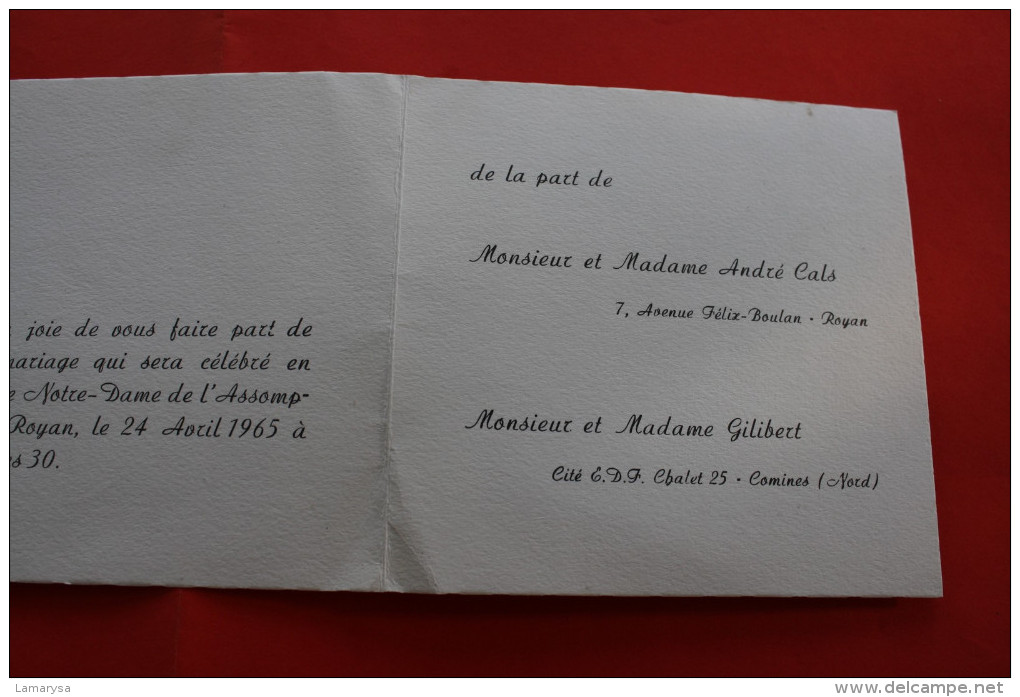 joie de vous faire part de
mariage qui sera célébré en
Notre-Dame de l'Assomp-
Royan, le 24 Avril 1965 à
30.
de la part de
Monsieur et Madame André Cals
7, Avenue Félix-Boulan - Royan
Monsieur et Madame Gilibert
Cité E.D.F. Chalet 25 - Comines (Nord)
Lamarysa
www.delcampe.net